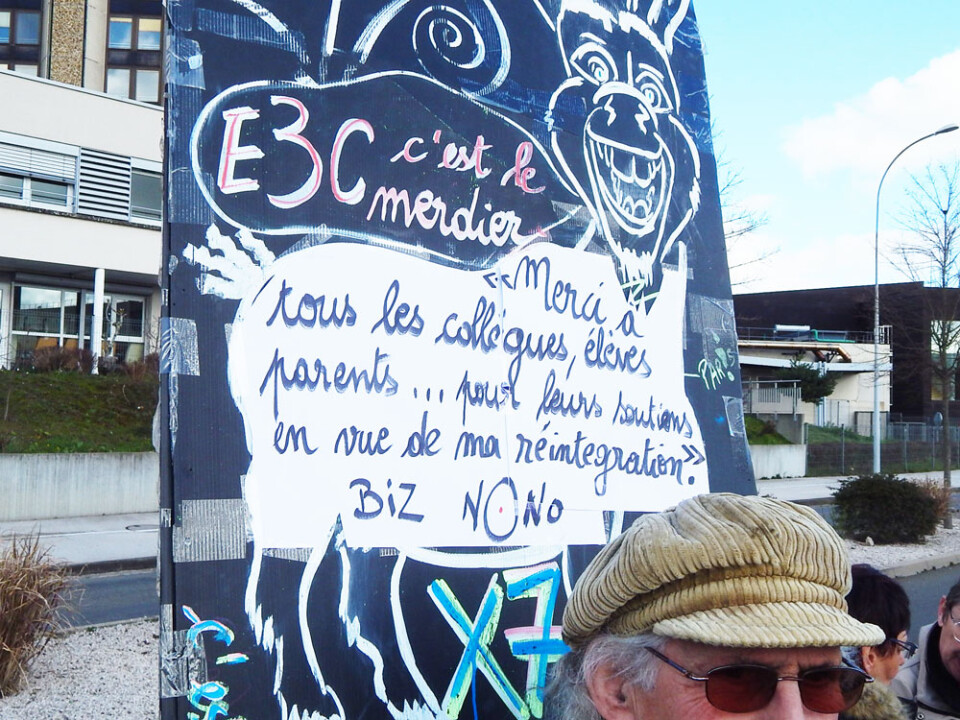 E3C c'est le
merdier
« Merci à
tous les collègues, élèves
parents ... pour leurs soutiens
en vue de ma réintegration».
BiZ NONO
PARIS
X7